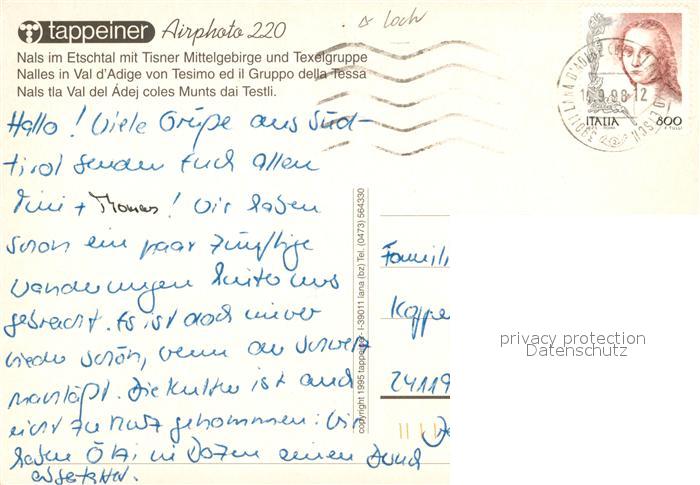 ☆ Loch
tappeiner Airphoto 220
Nals im Etschtal mit Tisner Mittelgebirge und Texelgruppe
Nalles in Val d'Adige von Tesimo ed il Gruppo della Tessa
Nals tla Val del Ádej coles Munts dai Testli.
14.9.98-12
ITALIA 800
Hallo! Viele Grüße aus Süd-
tirol senden Euch allen
+ Thomas! Wir haben
schon ein paar zünftige
Wanderungen hinter uns
gebracht. Es ist doch immer
wieder schön, wenn der Schmerz
nachläßt. Die Kultur ist auch
nicht zu kurz gekommen: Wir
haben Ötzi in Bozen einen Besuch
abgestattet.
copyright 1995 tappeiner - I-39011 lana (bz) Tel. (0473) 564330
Famili
Koppe
24119
privacy protection
Datenschutz